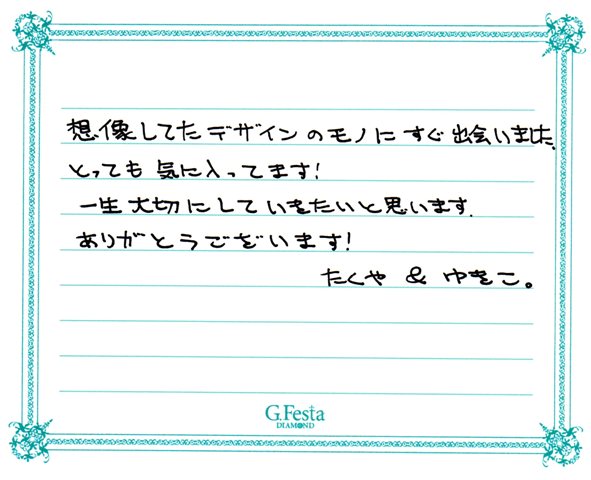 想像してたデザインのモノにすぐ出会いました.
とっても気に入ってます!
一生大切にしていきたいと思います.
ありがとうございます!
たくや & ゆきこ。
G.Festa
DIAMOND